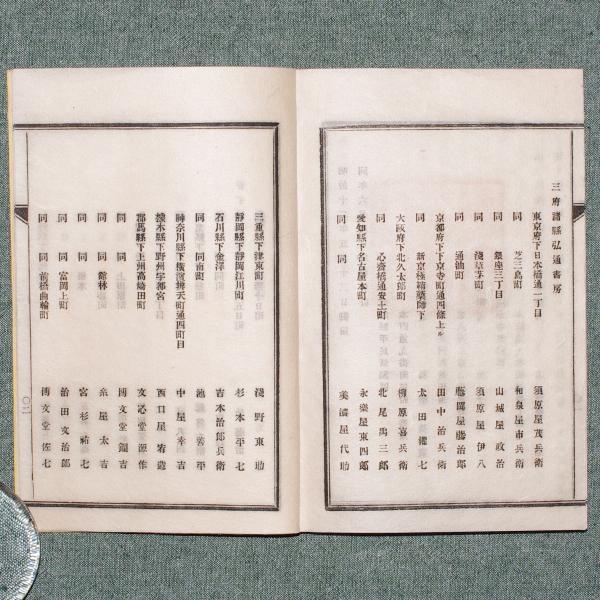 三府諸縣弘通書房
東京府下日本橋通一丁目 須原屋茂兵衛
同 芝三島町 和泉屋市兵衛
同 銀座三丁目 山城屋政治
同 淺草茅町 須原屋伊八
同 通油町 藤岡屋勝治郎
京都府下京寺町通四條上ル 田中治兵衛
同 新京極 太田
大阪府下北久太郎町 柳原喜兵衛
同 心齋橋通安土町 北尾禹三郎
愛知縣下名古屋本町 永樂屋東四郎
同 同 美濃屋代助
三重縣下津東町 淺野東助
靜岡縣下靜岡江川町 杉本平七
石川縣下金澤 吉本治郎兵衛
同 同南町 池善平
神奈川縣下橫濱辨天町通四町目 中屋幸吉
橡木縣下野州宇都宮 西口屋
郡馬縣下上州高崎田町 文心堂源作
同 上田原町 博文堂
同 館林 糸屋太吉
同 橋本 宮杉祐七
同 富岡上町 治田文治郎
同 前橋曲輪町 博文堂佐七